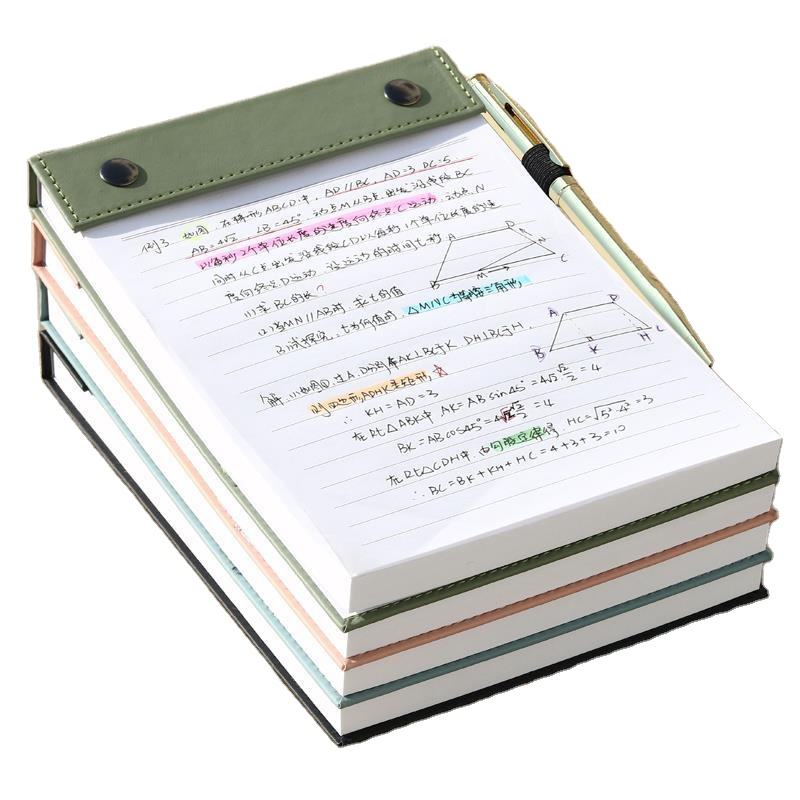 例3 如图,在梯形ABCD中,AD//BC,AD=3 DC=5
AB=4√2,∠B=45°,动点M从B点出发沿线段BC
以每秒2个单位长度的速度向终点C运动,动点N
同时从C点出发沿线段CD以每秒1个单位长度的速
度向终点D运动,设运动的时间t秒
(1)求BC的长?
(2)当MN//AB时,求t的值
(3)试探究,t为何值时,△MNC为等腰三角形
A D
N
B M C
A D
B K H C
解,(1)如图①,过A.D分别作AK⊥BC于K DH⊥BC于H,
则四边形ADHK是矩形,
∴ KH=AD=3
在Rt△ABK中 AK=ABsin45°=4√2·√2/2=4
BK=ABcos45°=4√2·√2/2=4
在Rt△CDH中,由勾股定律得,HC=√5²-4²=3
∴ BC=BK+KH+HC=4+3+3=10